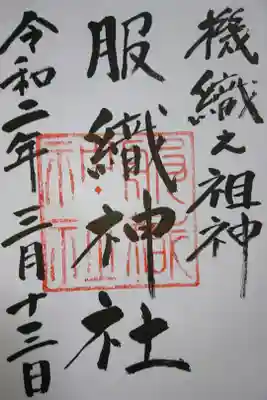 機織之祖神
服織神社
令和二年 三月十三日